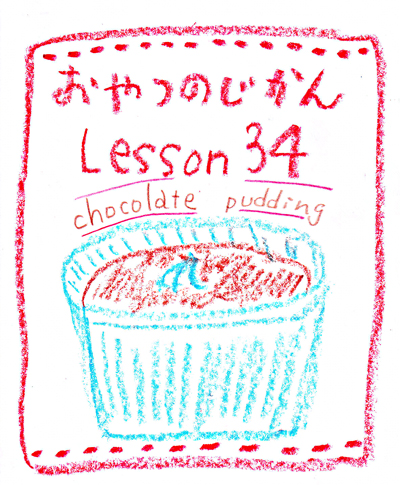 おやつのじかん
Lesson 34
chocolate pudding